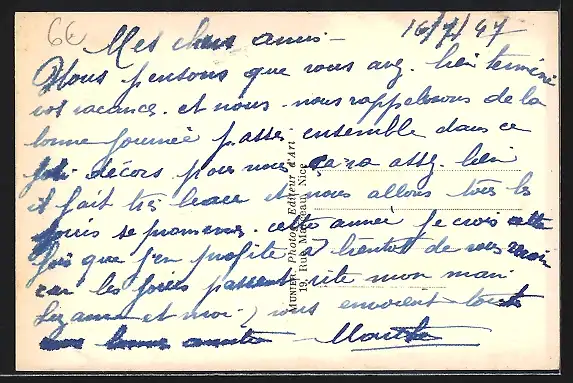 66
16/7/47
Mes chers amis -
Nous pensons que vous avez bien terminé
vos vacances. et nous nous rappelerons de la
bonne journée passée ensemble dans ce
joli décors pour nous ça va assez bien
il fait très beau et nous allons tous les
soirs se promener. cette année je crois cette
fois que j'en profite à bientôt de vous revoir
car les jours passent vite mon mari
Suzanne et moi vous envoient tout
bonne amitié
MUNIER Photog. Editeur d'Art
19, Rue Marceau, Nice